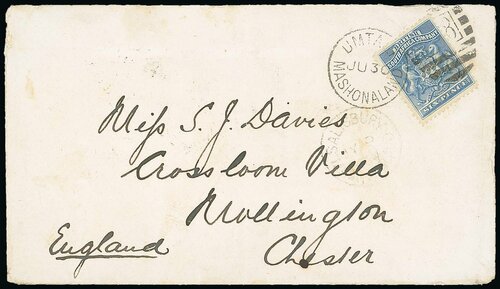 UMTALI
JU 30
MASHONALAND
BRITISH
SOUTH AFRICA COMPANY
SIX PENCE
SALISBURY
Miss S. J. Davies
Crossloom Villa
Mollington
Chester
England